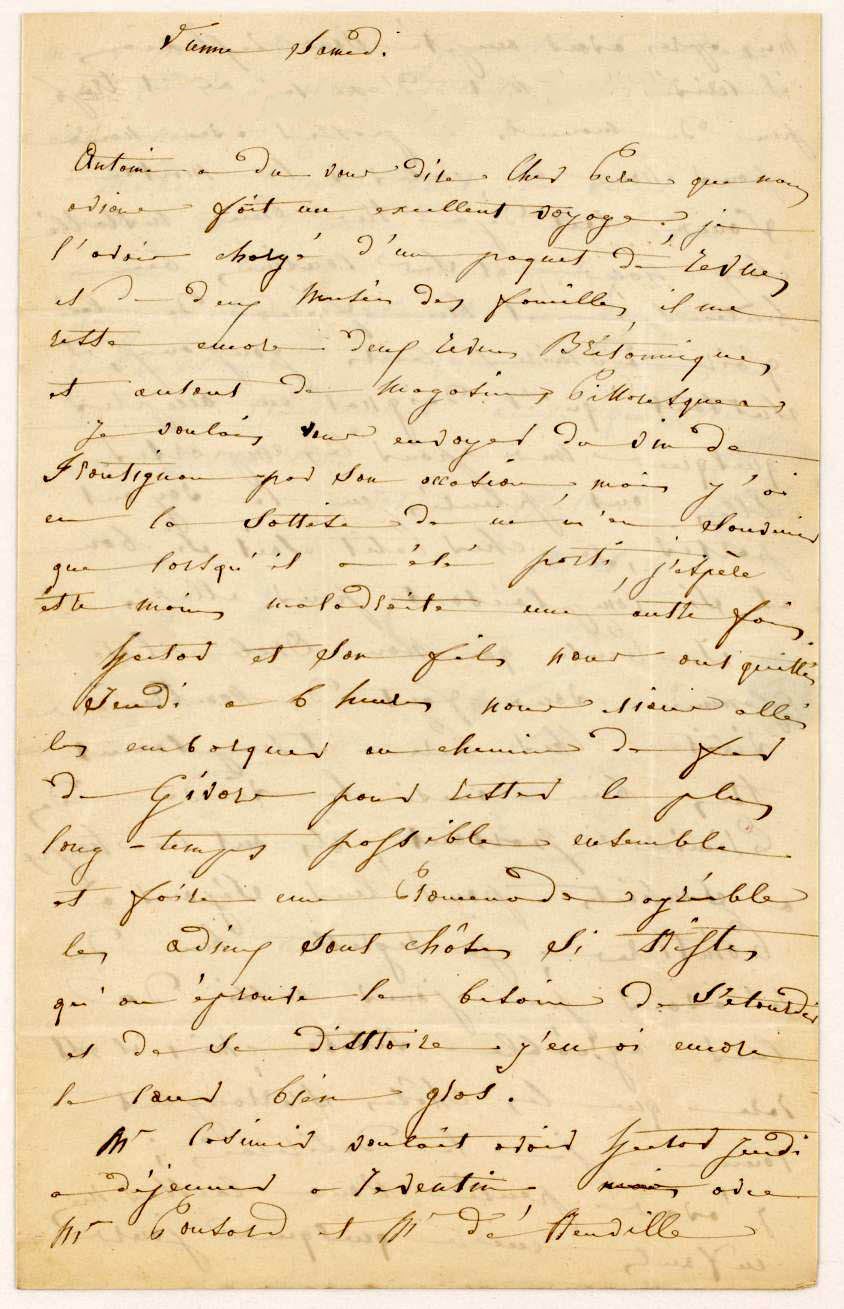 Vienne Samedi.
Antoine a du vous dire Cher Pere que nous
avions fait un excellent voyage, je
l'avois chargé d'un paquet de revues
et de deux Musées des familles, il me
reste encore deux revues Britanniques
et autant de Magasins Pittoresques
Je voulais vous envoyer du vin de
Frontignan par son occasion mais j'ai
eu la sottise de ne m'en souvenir
que lorsqu'il a été parti, j'espère
etre moins maladroite une autre fois.
Hector et son fils nous ont quittés
Jeudi a 6 heures nous allés
les embarquer au chemin de fer
de Givors pour rester le plus
long-temps possible ensemble
et faire une Promenade agréable
les adieux sont choses si tristes
qu'on éprouve le besoin de s'etourdir
et de se distraire. j'en ai encore
le cœur bien gros.
Mr Casimir voulait avoir Hector Jeudi
a déjeuner a Reventin avec
Mr Ponsard et Mr de